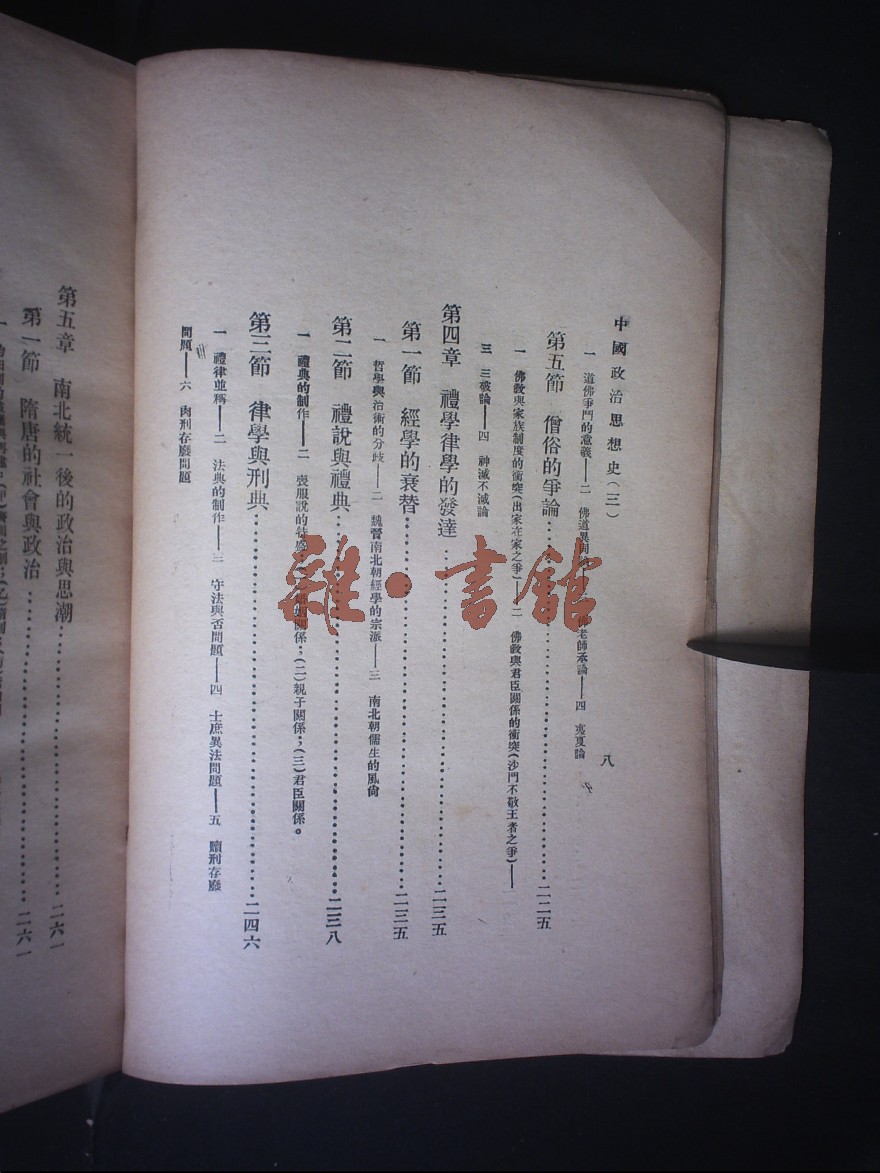 中國政治思想史(三)
八
一 道佛爭鬥的意義——二 佛道異同 佛老師承論——四 夷夏論
第五節 僧俗的爭論…………二二五
一 佛敎與家族制度的衝突(出家在家之爭)——二 佛敎與君臣關係的衝突(沙門不敬王者之爭)——
三 三破論——四 神滅不滅論
第四章 禮學律學的發達…………二三五
第一節 經學的衰替…………二三五
一 哲學與治術的分歧——二 魏晉南北朝經學的宗派——三 南北朝儒生的風尙
第二節 禮說與禮典…………二三八
一 禮典的制作——二 喪服說的 關係;(二)親子關係;(三)君臣關係。
第三節 律學與刑典…………二四六
一 禮律並稱——二 法典的制作——三 守法與否問題——四 士庶異法問題——五 贖刑存廢
問題——六 肉刑存廢問題
第五章 南北統一後的政治與思潮…………二六一
第一節 隋唐的社會與政治…………二六一
雜·書館